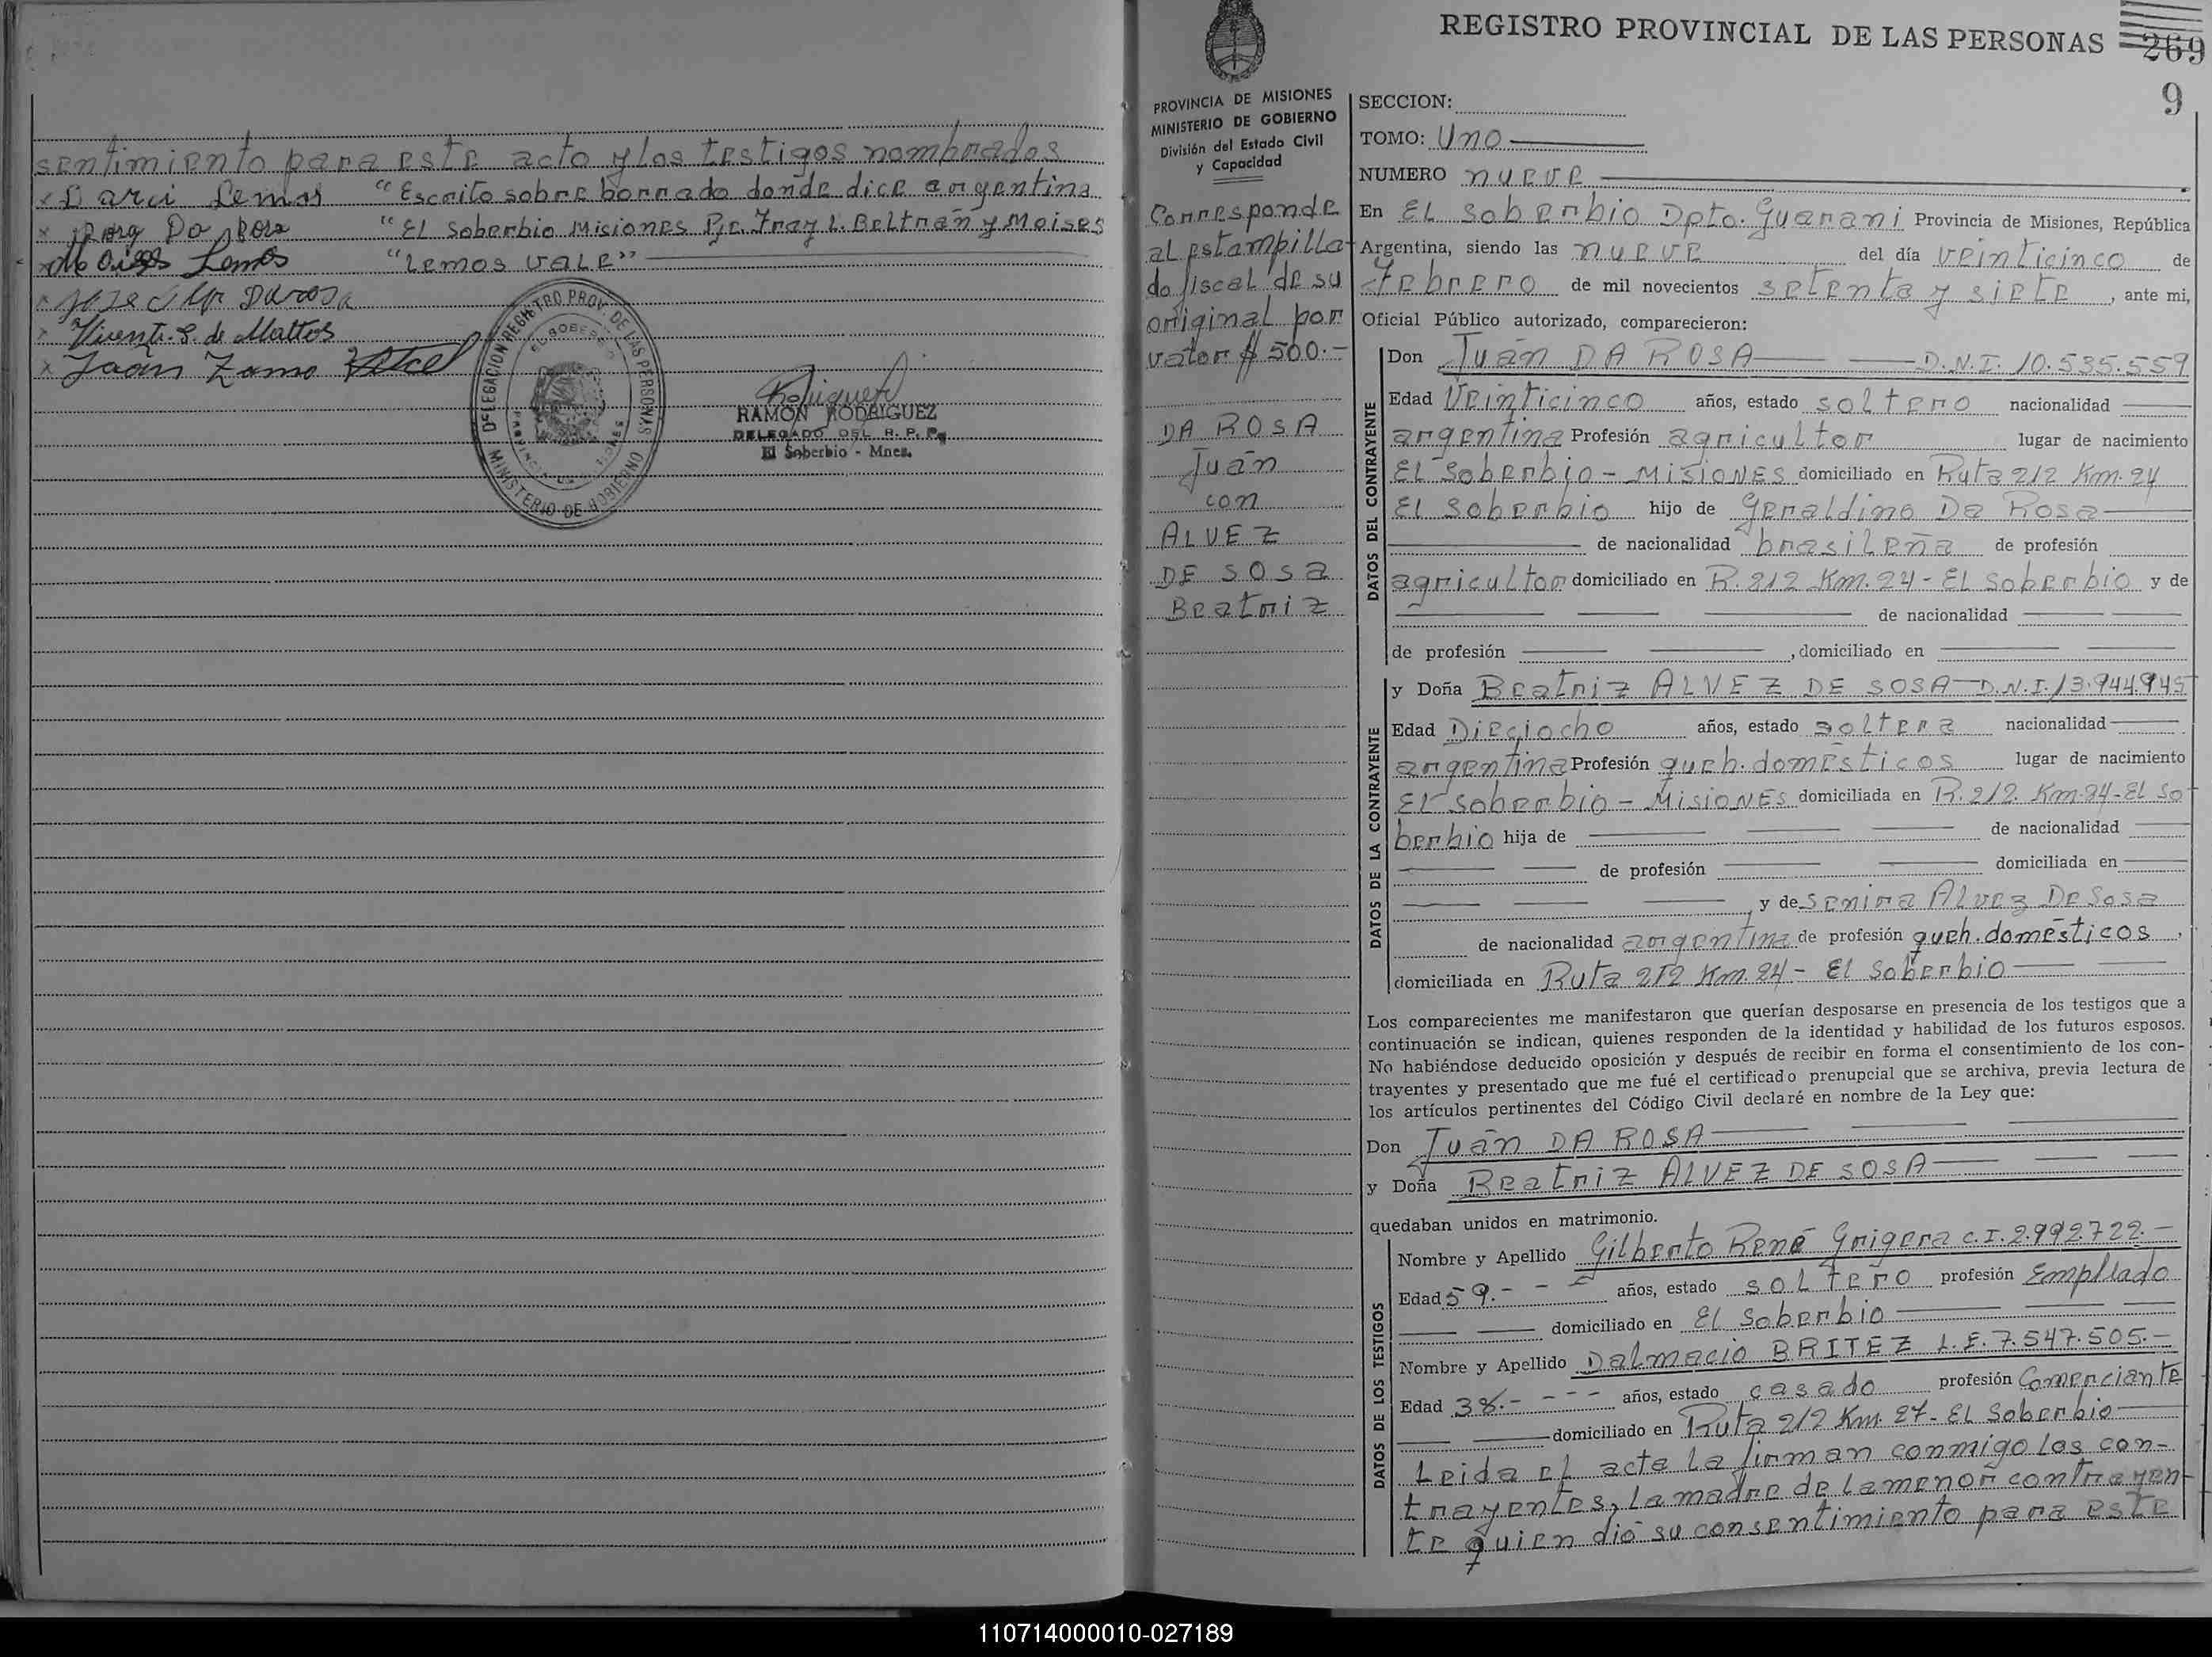 sentimiento para este acto y los testigos nombrados
x Darci Lemos "Escrito sobre borrado donde dice argentina
x Da Rosa "El Soberbio Misiones Pje. Fray L. Beltrán y Moises
x Moises Lemos "Lemos VALE"
x Jose Da rosa
x Vicente S. de Mattos
x Juan
DELEGACION REGISTRO PROV. DE LAS PERSONAS
EL SOBERBIO
MINISTERIO DE GOBIERNO
RAMON RODRIGUEZ
DELEGADO DEL R. P. P.
El Soberbio - Mnes.
REGISTRO PROVINCIAL DE LAS PERSONAS 269
9
PROVINCIA DE MISIONES
MINISTERIO DE GOBIERNO
División del Estado Civil
y Capacidad
Corresponde
al estampilla-
do fiscal de su
original por
valor $ 500.-
DA ROSA
Juán
con
ALVEZ
DE SOSA
Beatriz
SECCION:
TOMO: Uno
NUMERO nueve
En El Soberbio Dpto. Guarani Provincia de Misiones, República
Argentina, siendo las nueve del día veinticinco de
Febrero de mil novecientos setenta y siete, ante mi,
Oficial Público autorizado, comparecieron:
DATOS DEL CONTRAYENTE
Don Juán DA ROSA D.N.I. 10.535.559
Edad Veinticinco años, estado soltero nacionalidad
argentina Profesión agricultor lugar de nacimiento
El Soberbio - MISIONES domiciliado en Ruta 212 Km. 24
El Soberbio hijo de Geraldino Da Rosa
de nacionalidad brasileña de profesión
agricultor domiciliado en R. 212 Km. 24 - El Soberbio y de
de nacionalidad
de profesión , domiciliado en
DATOS DE LA CONTRAYENTE
y Doña Beatriz ALVEZ DE SOSA D.N.I. 13.944.945
Edad Dieciocho años, estado soltera nacionalidad
argentina Profesión queh. domésticos lugar de nacimiento
El Soberbio - MISIONES domiciliada en R. 212 Km. 24 - El So
berbio hija de de nacionalidad
de profesión domiciliada en
y de Senira Alvez De Sosa
de nacionalidad argentina de profesión queh. domésticos,
domiciliada en Ruta 212 Km. 24 - El Soberbio
Los comparecientes me manifestaron que querían desposarse en presencia de los testigos que a
continuación se indican, quienes responden de la identidad y habilidad de los futuros esposos.
No habiéndose deducido oposición y después de recibir en forma el consentimiento de los con-
trayentes y presentado que me fué el certificado prenupcial que se archiva, previa lectura de
los artículos pertinentes del Código Civil declaré en nombre de la Ley que:
Don Juán DA ROSA
y Doña Beatriz ALVEZ DE SOSA
quedaban unidos en matrimonio.
DATOS DE LOS TESTIGOS
Nombre y Apellido Gilberto René Grigera C.I. 2.992.722.-
Edad 59.- años, estado soltero profesión Empleado
domiciliado en El Soberbio
Nombre y Apellido Dalmacio BRITEZ L.E. 7.547.505.-
Edad 38.- años, estado casado profesión Comerciante
domiciliado en Ruta 212 Km. 27 - El Soberbio
Leida el acta la firman conmigo los con-
trayentes, la madre de la menor contrayen-
te quien dió su consentimiento para este
110714000010-027189